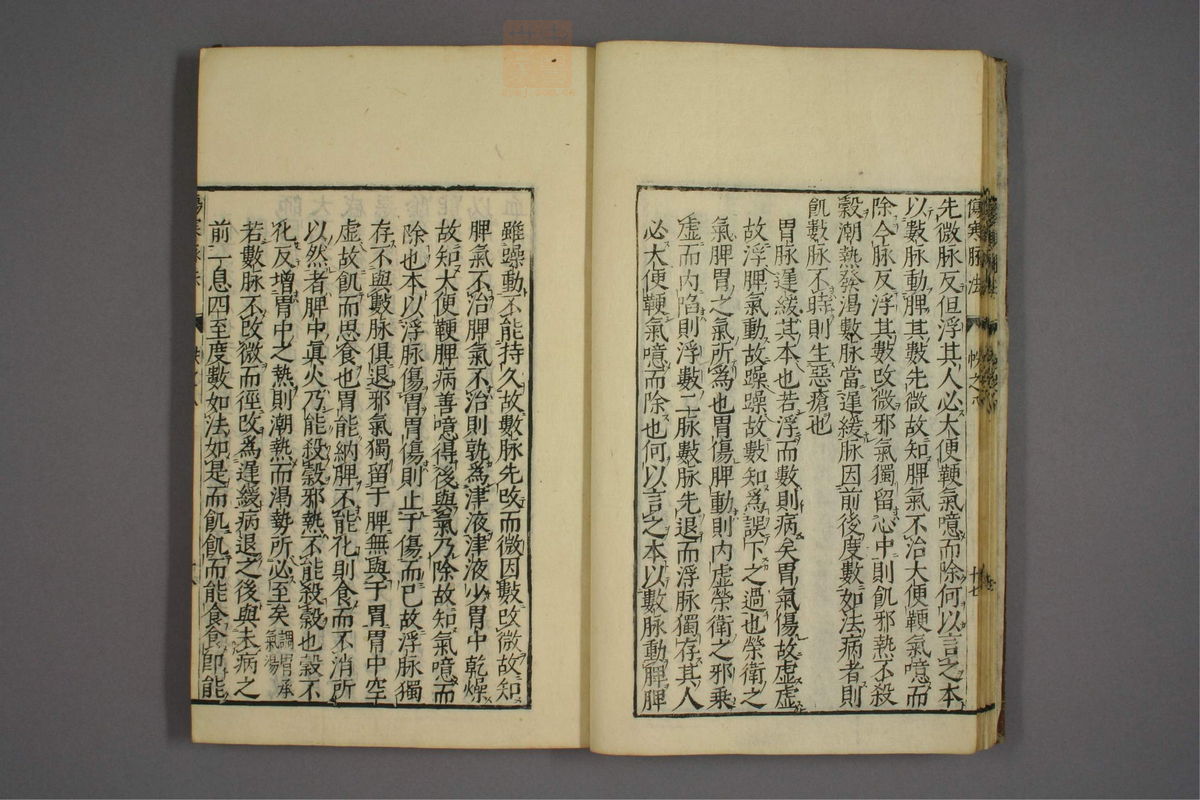 傷寒脉法 帙之八 十七
先微脉反但浮其人必大便鞕氣噫而除何以言之本
以數脉動脾其數先微故知脾氣不治大便鞕氣噫而
除今脉反浮其數改微邪氣獨留心中則飢邪熱不殺
穀潮熱發渴數脉當遲緩脉因前後度數如法病者則
飢數脉不時則生惡瘡也
胃脉遲緩其本也若浮而數則病矣胃氣傷故虛虛
故浮脾氣動故躁躁故數知爲誤下之過也榮衛之
氣脾胃之氣所爲也胃傷脾動則内虛榮衛之邪乗
虛而内陷則浮數二脉數脉先退而浮脉獨存其人
必大便鞕氣噫而除也何以言之本以數脉動脾脾
雖躁動不能持久故數脉先改而微因數改微故知
脾氣不治脾氣不治則孰爲津液津液少胃中乾燥
故知大便鞕脾病善噫得後與氣乃除故知氣噫而
除也本以浮脉傷胃胃傷則止于傷而已故浮脉獨
存不與數脉俱退邪氣獨留于脾無與于胃胃中空
虛故飢而思食也胃能納脾不能化則食而不消所
以然者脾中眞火乃能殺穀邪熱不能殺穀也穀不
化反增胃中之熱則潮熱而渴勢所必至矣調胃承氣湯
若數脉不改微而徑改爲遲緩病退之後與未病之
前一息四至度數如法如是而飢飢而能食食即能